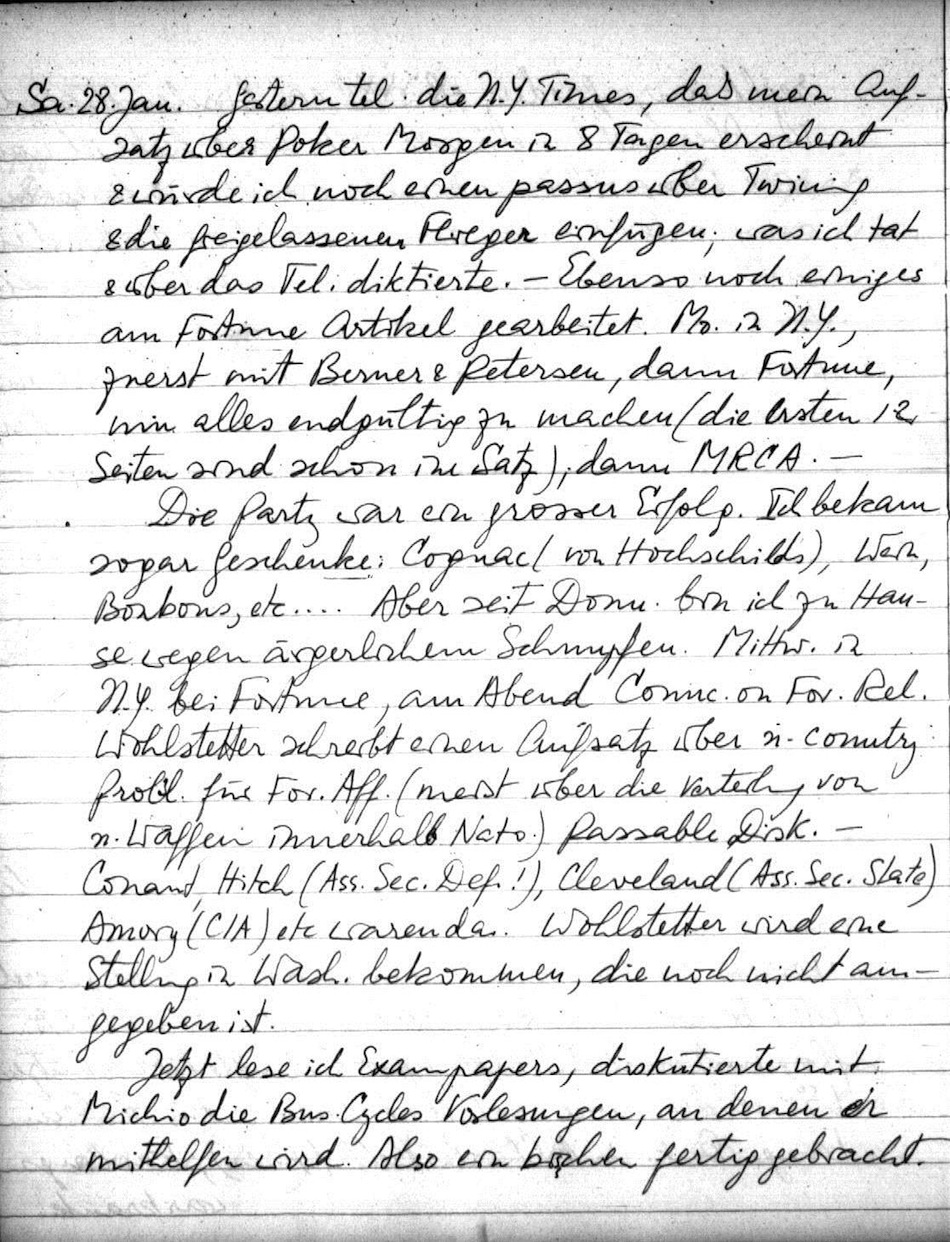 Sa. 28. Jan. Gestern tel. die N.Y. Times, daß mein Auf-
satz über Poker Morgen in 8 Tagen erscheint
& würde ich noch einen passus über Twining
& die freigelassenen Flieger einfügen; was ich tat
& über das Tel. diktierte. – Ebenso noch einiges
am Fortune Artikel gearbeitet. Mo. in N.Y.,
zuerst mit Berner & Petersen, dann Fortune,
um alles endgültig zu machen (die ersten 12
Seiten sind schon im Satz); dann MRCA. –
Die Party war ein grosser Erfolg. Ich bekam
sogar Geschenke: Cognac (von Hochschilds), Wein,
Bonbons, etc.... Aber seit Donn. bin ich zu Hau-
se wegen ärgerlichem Schnupfen. Mittw. in
N.Y. bei Fortune, am Abend Counc. on For. Rel.
Wohlstetter schreibt einen Aufsatz über n-country
Probl. für For. Aff. (meist über die Verteilg von
n. Waffen innerhalb Nato.) Passable Disk. –
Conant, Hitch (Ass. Sec. Def.!), Cleveland (Ass. Sec. State)
Amory (CIA) etc waren da. Wohlstetter wird eine
Stellng in Wash. bekommen, die noch nicht an-
gegeben ist.
Jetzt lese ich Exampapers, diskutierte mit
Michio die Bus. Cycles Vorlesungen, an denen er
mithelfen wird. Also ein bischen fertig gebracht.